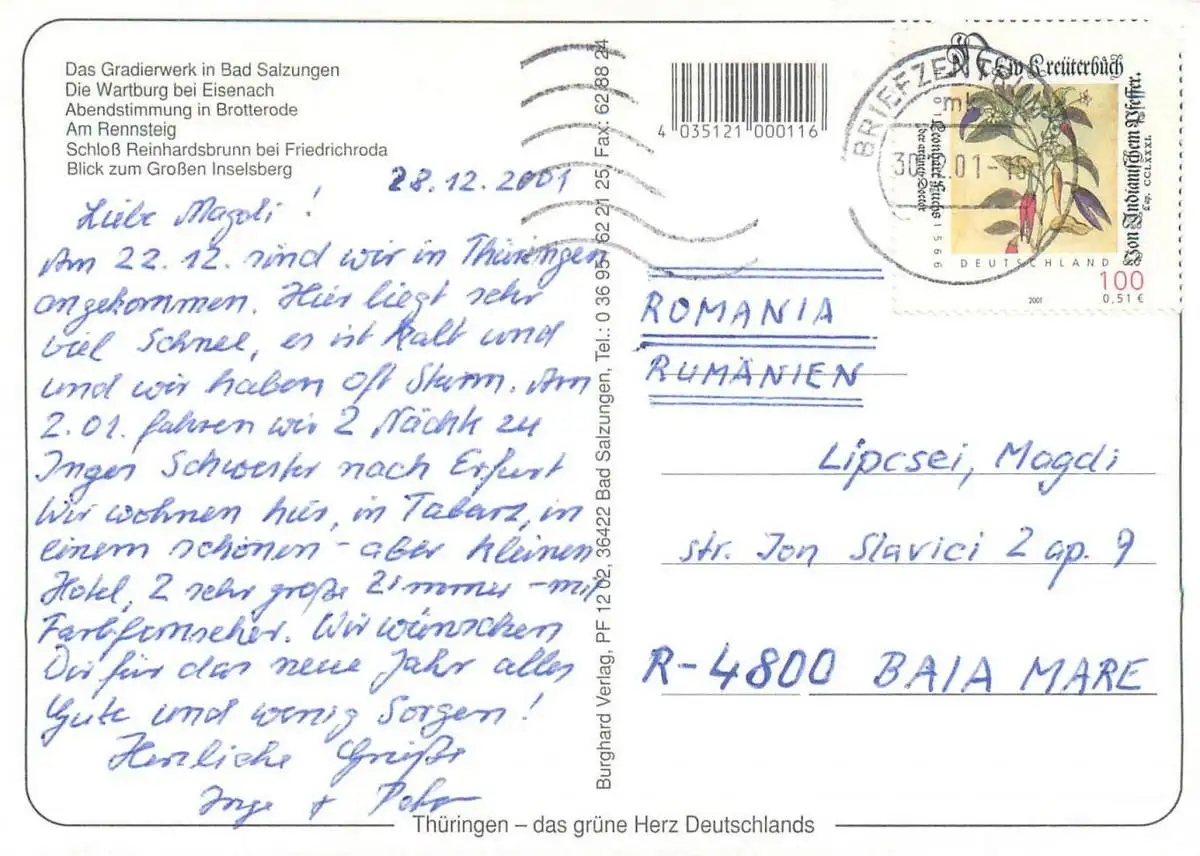 Das Gradierwerk in Bad Salzungen
Die Wartburg bei Eisenach
Abendstimmung in Brotterode
Am Rennsteig
Schloß Reinhardsbrunn bei Friedrichroda
Blick zum Großen Inselsberg
28.12.2001
Liebe Magdi!
Am 22.12. sind wir in Thüringen
angekommen. Hier liegt sehr
viel Schnee, es ist kalt und
und wir haben oft Sturm. Am
2.01. fahren wir 2 Nächte zu
Inges Schwester nach Erfurt
Wir wohnen hier, in Tabarz, in
einem schönen - aber kleinen
Hotel, 2 sehr große Zimmer - mit
Farbfernseher. Wir wünschen
Dir für das neue Jahr alles
Gute und wenig Sorgen!
Herzliche Grüße
Inge + Peter
Burghard Verlag, PF 12 02, 36422 Bad Salzungen, Tel.: 0 36 95 / 62 21 25, Fax: 62 88 24
4 035121 000116
BRIEFZENTRUM
01-15
New Kreüterbůch
Von Indianischem Pfeffer.
Cap. CCLXXXI.
Leonhart Fuchs 1566
der artzney Doctor
DEUTSCHLAND
100
0,51 €
2001
ROMANIA
RUMÄNIEN
Lipcsei, Magdi
str. Ion Slavici 2 ap. 9
R-4800 BAIA MARE
Thüringen – das grüne Herz Deutschlands